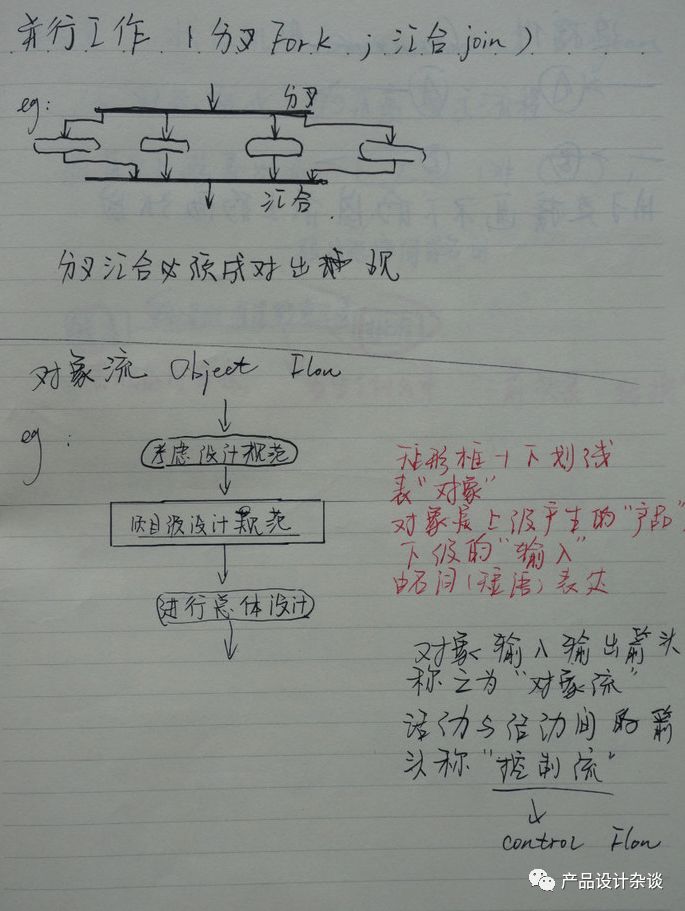 并行工作 (分叉Fork ; 汇合join)
eg:
分叉
汇合
分叉汇合必须成对出现
对象流 Object Flow
eg :
考虑设计规范
项目级设计规范
进行总体设计
矩形框+下划线
表"对象"
对象是上级产生的"产品",
下级的"输入"
由名词(短语)表达
对象输入输出箭头
称之为"对象流"
活动与活动间的箭
头称"控制流"
control Flow
产品设计杂谈